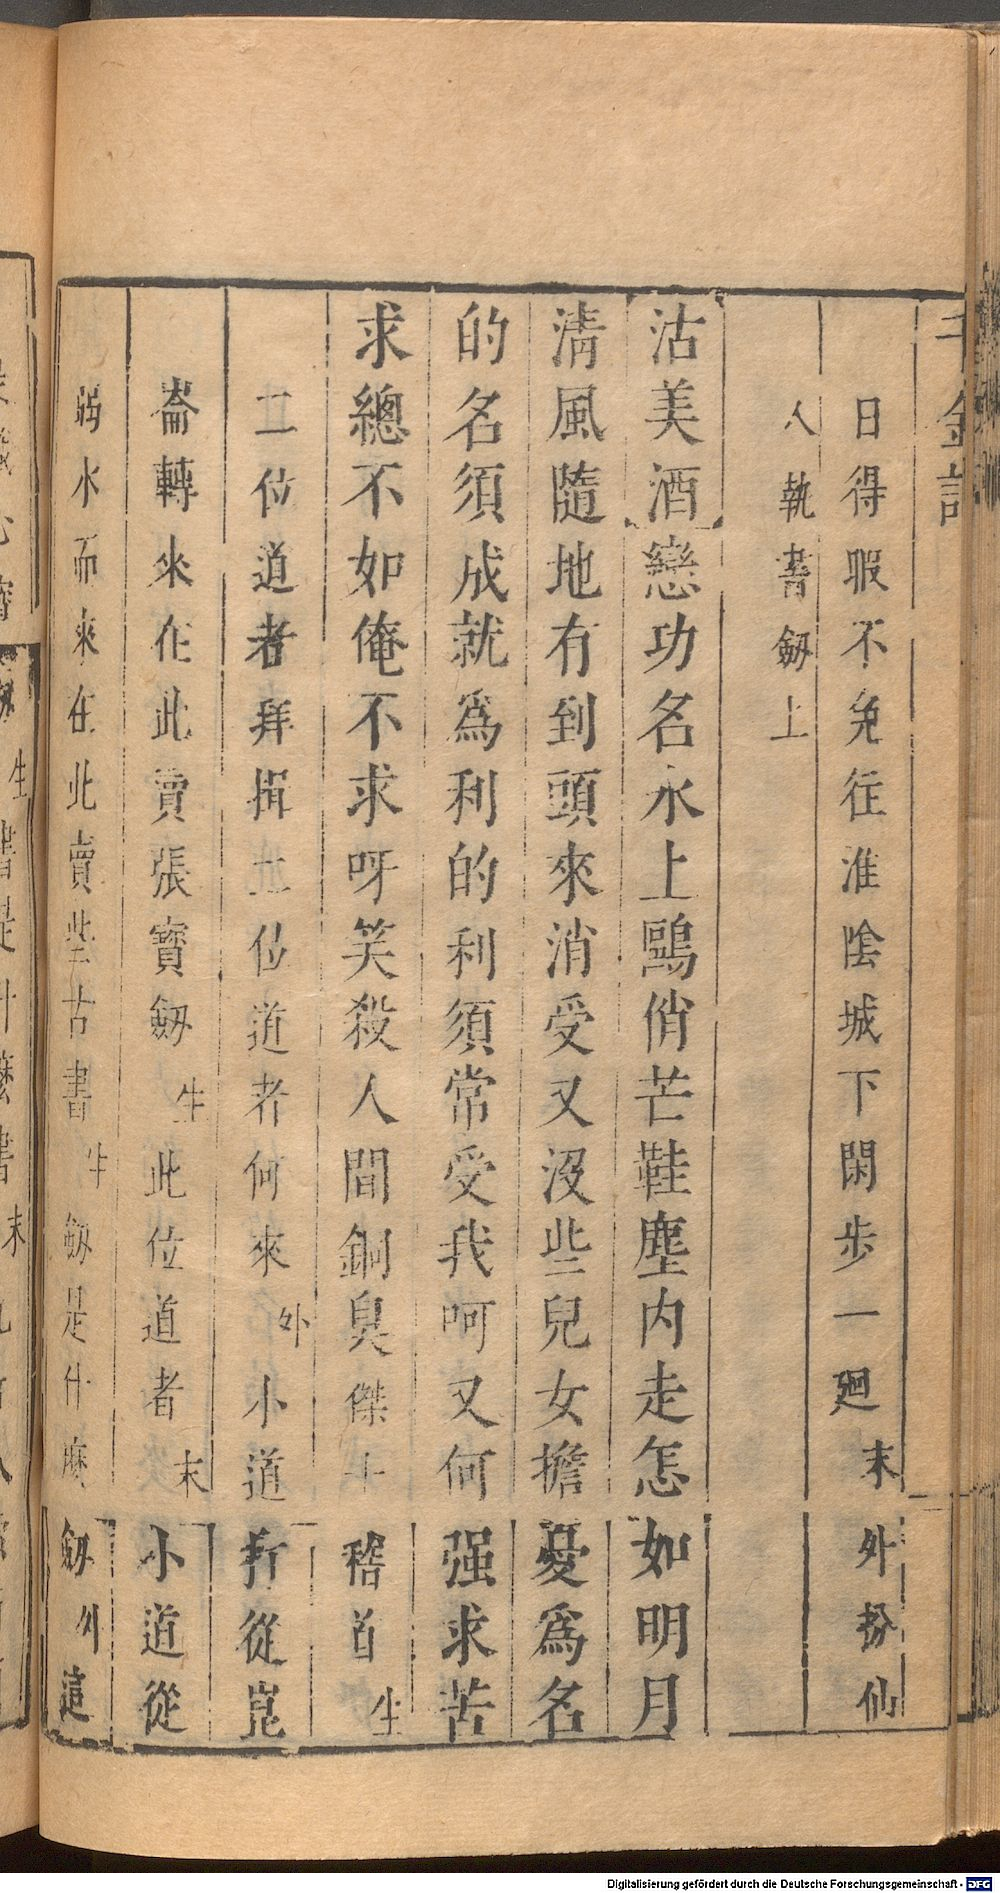 千金記
日得暇不免往淮陰城下閑步一廻末外扮仙
人執書劔上
沽美酒戀功名水上鷗俏芒鞋塵内走怎如明月
淸風隨地有到頭來消受又沒些兒女擔憂爲名
的名須成就爲利的利須常受我呵又何强求苦
求總不如俺不求呀笑殺人間銅臭傑士稽首生
二位道者拜揖二位道者何來外小道打從崑
崙轉來在此賣張寳劔生此位道者末小道從
弱水而來在此賣些古書生劔是什麽劔外這
生書是什麽書末
Digitalisierung gefördert durch die Deutsche Forschungsgemeinschaft - DFG